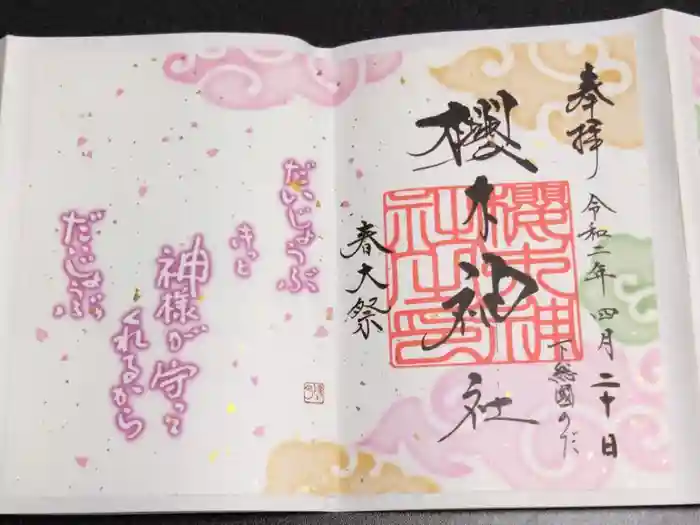 奉拝
令和二年四月二十日
下総國のだ
櫻木神社
櫻木神社之印
春大祭
だいじょうぶ
きっと
神様が守って
くれるから
だいじょうぶ